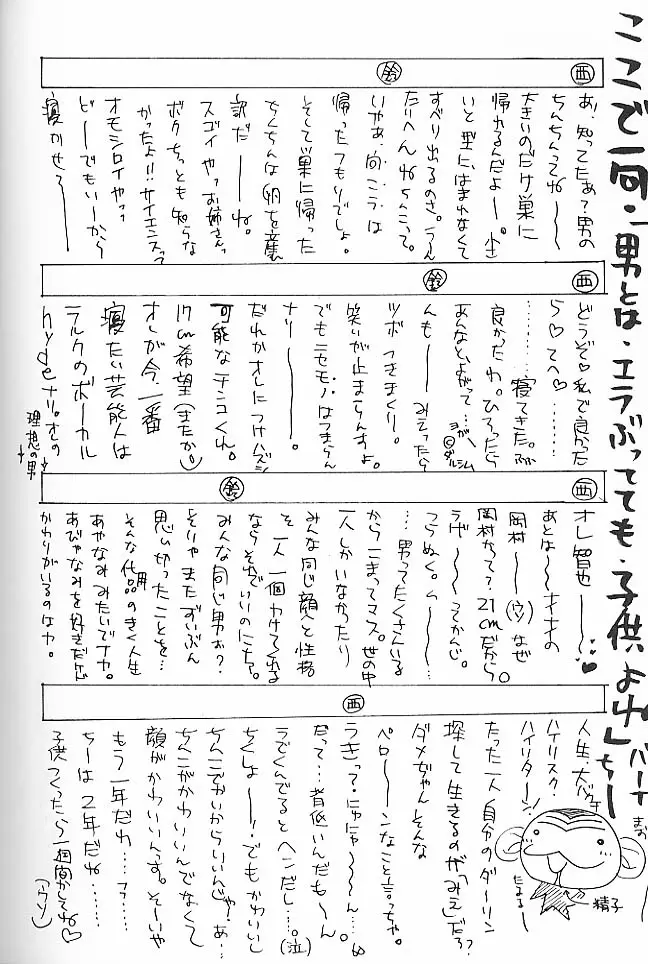 ここで一句・「男とは・エラぶってても・子供よね」 バーイ ちー
西
あ、知ってたぁ?男の
ちんちんってね〜〜
大きいのだけ巣に
帰れるんだよー。小さ
いと型にはまれなくて
すべり出るのさ。うん
たいへんねちんこって。
鈴
いやぁ、向こうは
帰ったつもりでしょ。
そして巣に帰った
ちんちんは卵を産む
訳だ――ね。
スゴイやっお姉さんっ
ボクちっとも知らな
かったよ!!サイエンスって
オモシロイやっっ
ど――でもい――から
寝かせろ――
西
どうぞ♡私で良かった
ら♡てへ♡………
………寝てきた。ふぅ
良かったわ。ひろったら
あんなによがって…
ヨガ〜
©ダルシム
鈴
んも――みえったら
ツボつきまくり。
笑いが止まらんすよ。
でもニセモノはつまらん
ナリ――。
だれかオレにつけハズシ
可能なチンコくれ。
17cm希望(またか。)
オレが今、一番
寝たい芸能人は
ラルクのボーカル
hydeナリ。オレの
理想の男
西
オレ智也――…♥
あとは〜ナイナイの
岡村――(ウソ)なぜ
岡村かって?21cmだから。
ラブ――ってかんじ。
つらぬく。う――…
鈴
…男ってたくさんいる
からこまってマス。世の中
一人しかいなかったり
みんな同じ顔と性格
で一人一個わけてくれる
ならそれでいいのにナー。
みんな同じ男ぉ?
そいやまたずいぶん
思い切ったことを…
そんな代用品のきく人生
あやなみみたいでナカ。
あびゃなみを好きだけど
かわりがいるのはナカ。
西
人生、大バクチ
ハイリスク・
ハイリターン!
たった一人自分のダーリン
探して生きるのが「みえ」だろ?
ダメぢゃんそんな
ペロ――ンなこと言っちゃ。
うきっって・にゅにゃ〜〜ん…
だって…背低いんだも――ん。
ラでくんでるとヘンだし…。(泣)
ちくしょ――!でもかわいいし
ちんこでかいからいいんじゃ!あ…
ちんこがかわいいんでなくて
顔がかわいいんっす。そーいや
もう一年だわ……っっ
ちーは2年だね……
子供つくったら一個間かしてね♡
(ウソ)
まお
たまる〜
精子